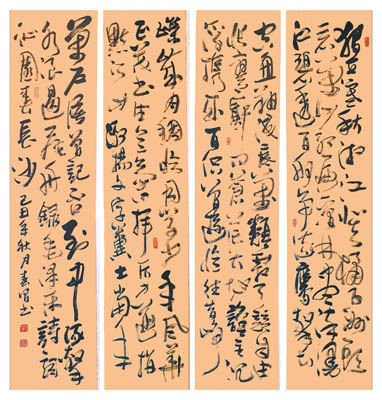 独立寒秋湘江北去橘子洲头
看万山红遍层林尽染漫
江碧透百舸争流鹰击长
空鱼翔浅底万类霜天竞自由
怅寥廓问苍茫大地谁主沉
浮携来百侣曾游忆往昔峥
嵘岁月稠恰同学少年风华
正茂书生意气挥斥方遒指
点江山激扬文字粪土当年
万户侯曾记否到中流击
水浪遏飞舟録毛泽东詩词
沁園春長沙
己丑年秋月春